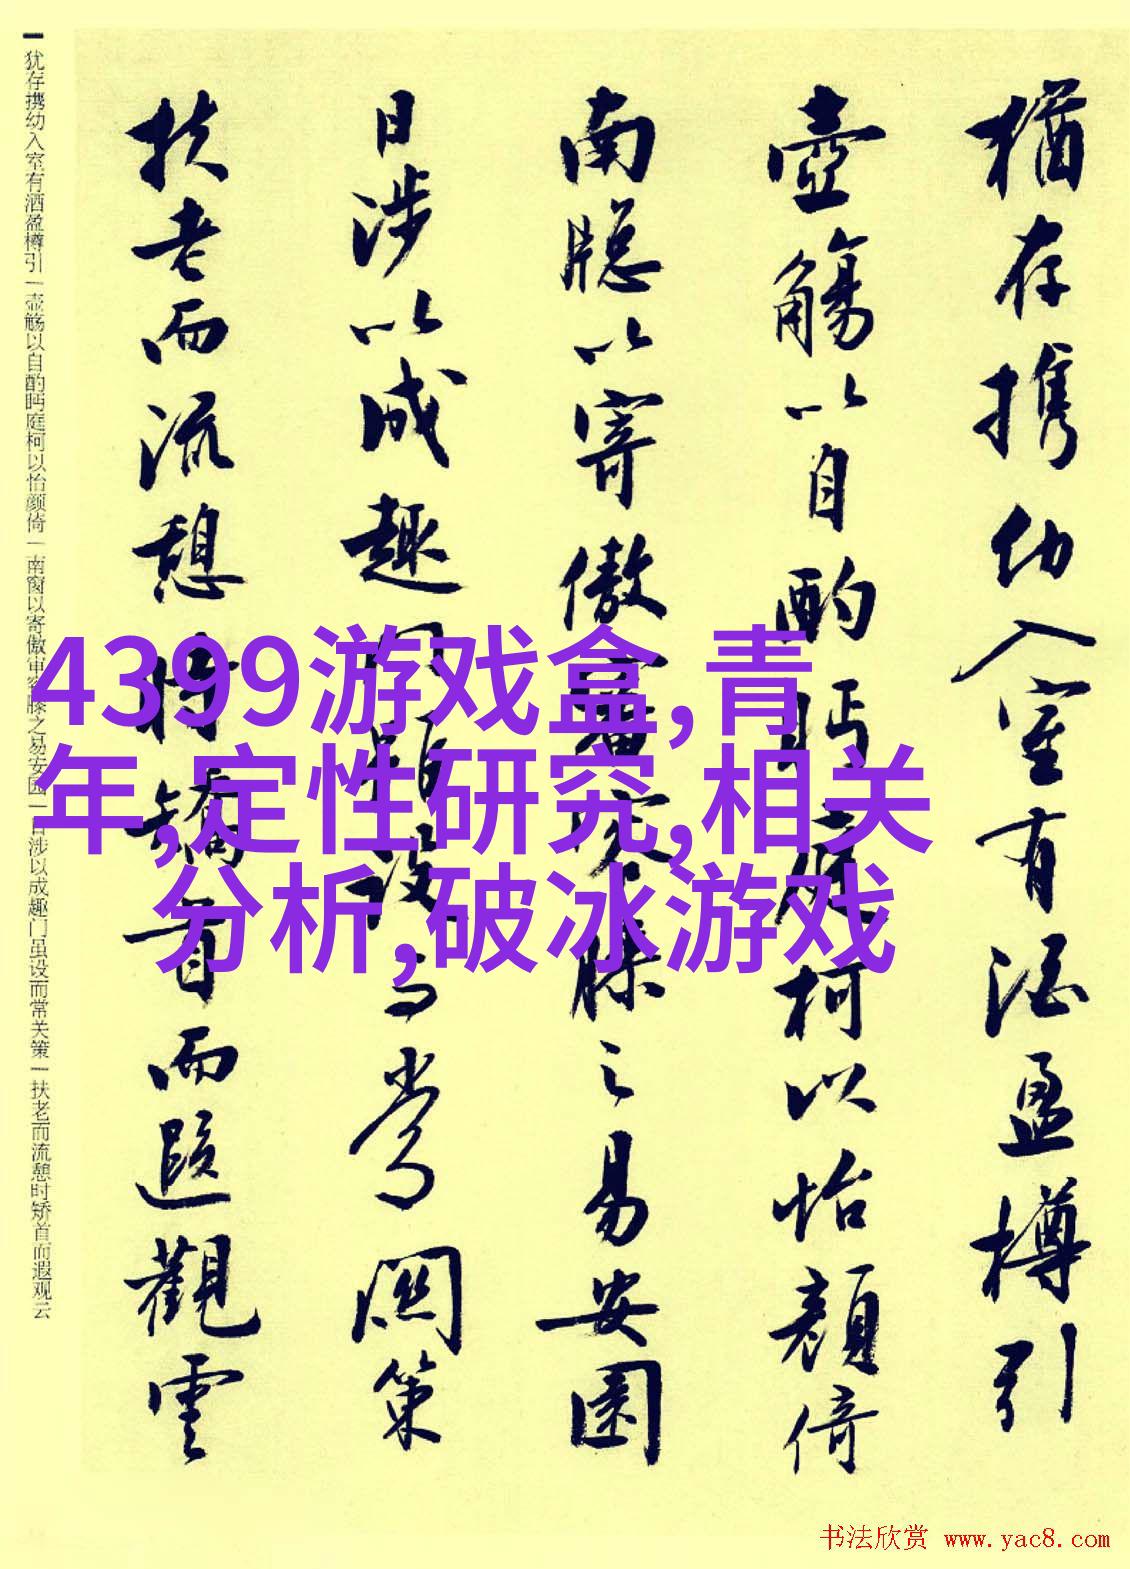 猶存携幼入室有酒盈樽引
壺觴以自酌眄庭柯以怡顔倚
南牕以寄傲審容膝之易安園
日涉以成趣門雖設而常關策
扶老而流憩時矯首而遐觀雲
犹存携幼入室有洒盈樽引一壶觞以自酌眄庭柯以怡颜倚一南窗以寄傲审容膝之易安园一日涉以成趣门虽设而常关策一扶老而流憩时矫首而遐观云
4399游戏盒,青
年,定性研究,相关
分析,破冰游戏
书法欣赏 www.yac8.com